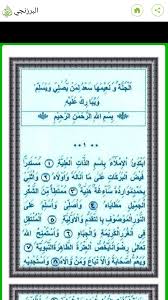 البرزنجي
الْجَنَّةُ وَنَعِيمُهَا سَعْدٌ لِمَنْ يُصَلِّي وَيُسَلِّمُ
وَيُبَارِكُ عَلَيْهِ
بِسْمِ اللهِ الرَّحْمٰنِ الرَّحِيْمِ
أَبْتَدِئُ الْإِمْلَاءَ بِاسْمِ الذَّاتِ الْعَلِيَّةِ مُسْتَدِرًّا
فَيْضَ الْبَرَكَاتِ عَلَى مَا أَنَالَهُ وَأَوْلَاهُ وَأُثَنِّي
بِحَمْدٍ مَوَارِدُهُ سَائِغَةٌ هَنِيَّةٌ مُمْتَطِيًا مِنَ
الشُّكْرِ الْجَمِيلِ مَطَايَاهُ وَأُصَلِّي وَأُسَلِّمُ عَلَى
النُّورِ الْمَوْصُوفِ بِالتَّقَدُّمِ وَالْأَوَّلِيَّةِ الْمُنْتَقِلِ
فِي الْغُرَرِ الْكَرِيمَةِ وَالْجِبَاهِ وَأَسْتَمْنِحُ اللهَ
تَعَالَى رِضْوَانًا يَخُصُّ الْعِتْرَةَ الطَّاهِرَةَ النَّبَوِيَّةَ
وَيَعُمُّ الصَّحَابَةَ وَالْأَتْبَاعَ وَمَنْ وَالَاهُ وَأَسْتَجْدِيهِ